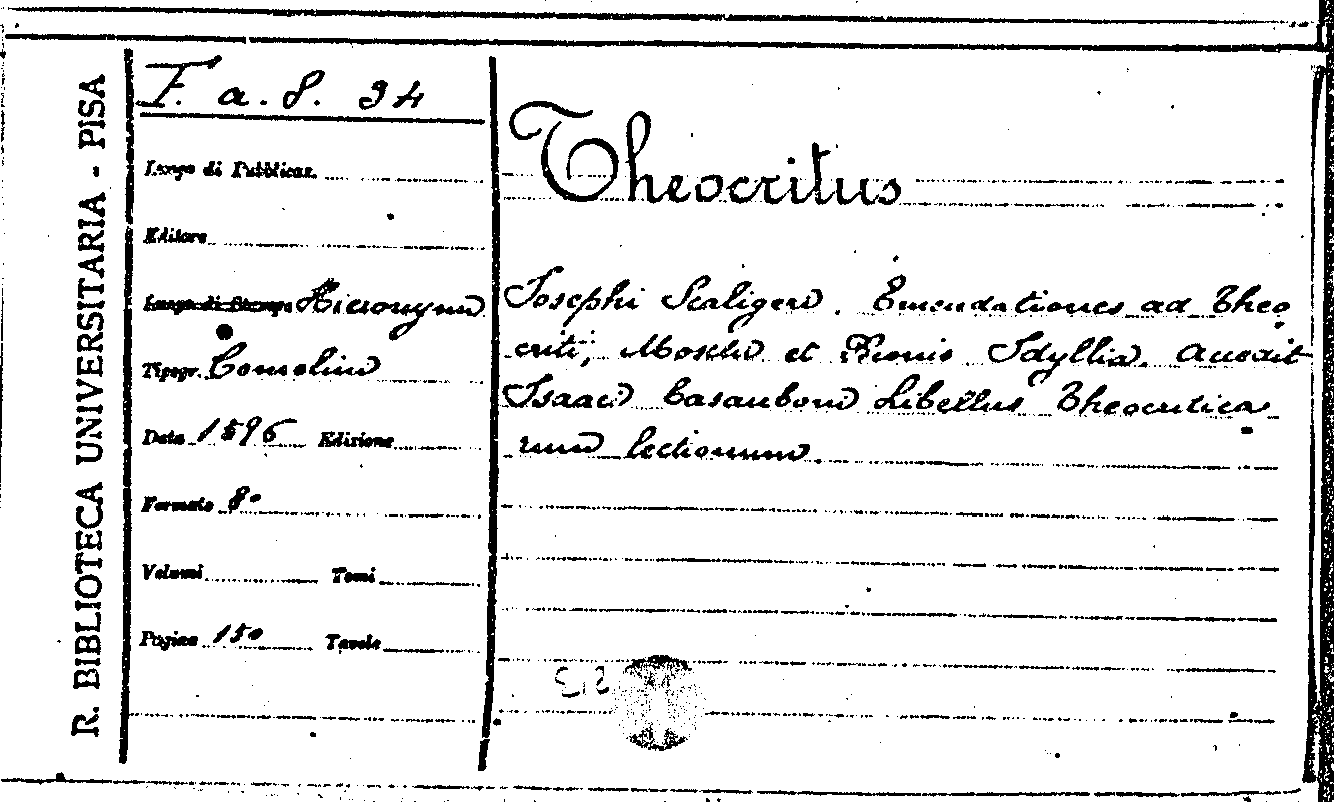 R. BIBLIOTECA UNIVERSITARIA - PISA
F. a. 8. 34
Luogo di Pubblicaz.
Editore
Luogo di Stampa Hieronymi
Tipogr. Comelini
Data 1596 Edizione
Formato 8°
Volumi Tomi
Pagine 150 Tavole
Theocritus
Josephi Scaligeri. Emendationes ad Theo
criti, Moschi et Bionis Idyllia. Accedit
Isaaci Casauboni Libellus Theocritica
rum lectionum.